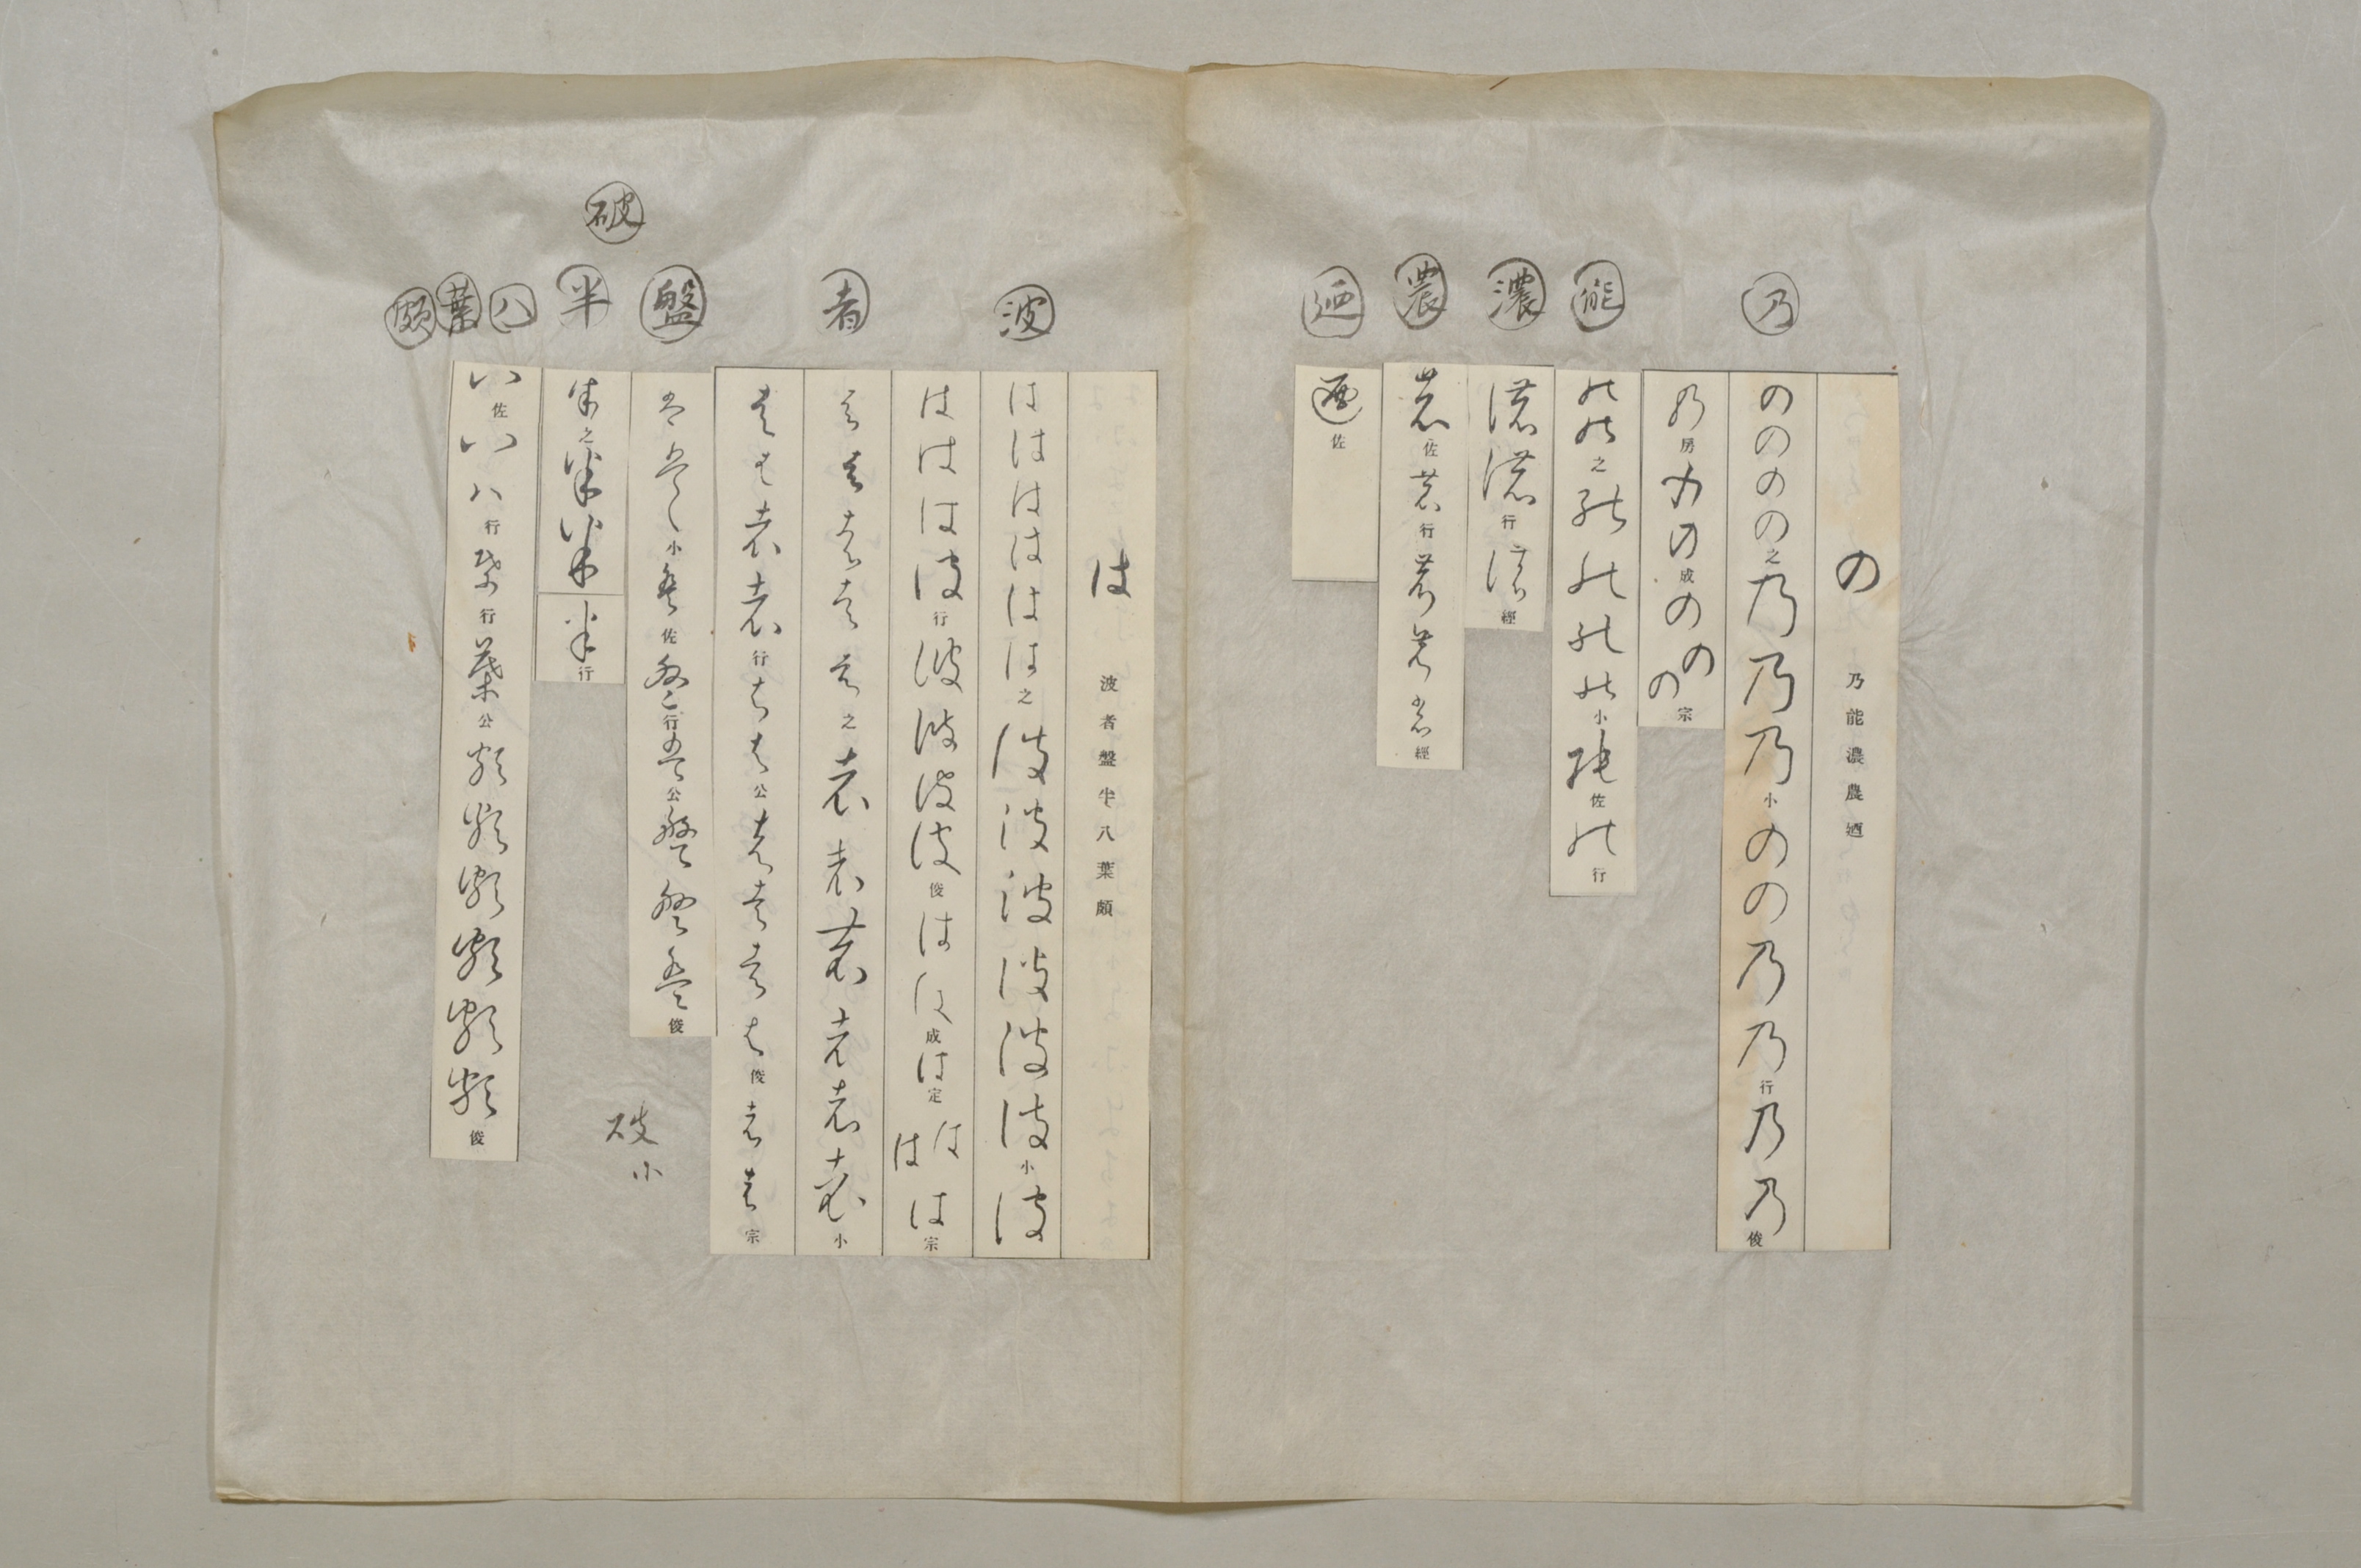 乃
能
濃
農
廼
の 乃能濃農廼
のののの之乃乃乃小のの乃乃行乃乃俊
乃房乃の成ののの宗
能能之能能能能小能佐能行
濃濃行濃經
農佐農行農農農經
廼佐
波
者
盤
半
破
八
葉
頗
は 波者盤半八葉頗
はははははは之波波波波波波小波
ははは波行波波波波俊はは成は定ははは宗
者者者者者之者者者者者者小
者者者者行者者公者者者者俊者者宗
盤盤小盤佐盤行盤公盤盤盤俊
半之半半
半行
破小
八佐八八行葉行葉公頗頗頗頗頗頗俊